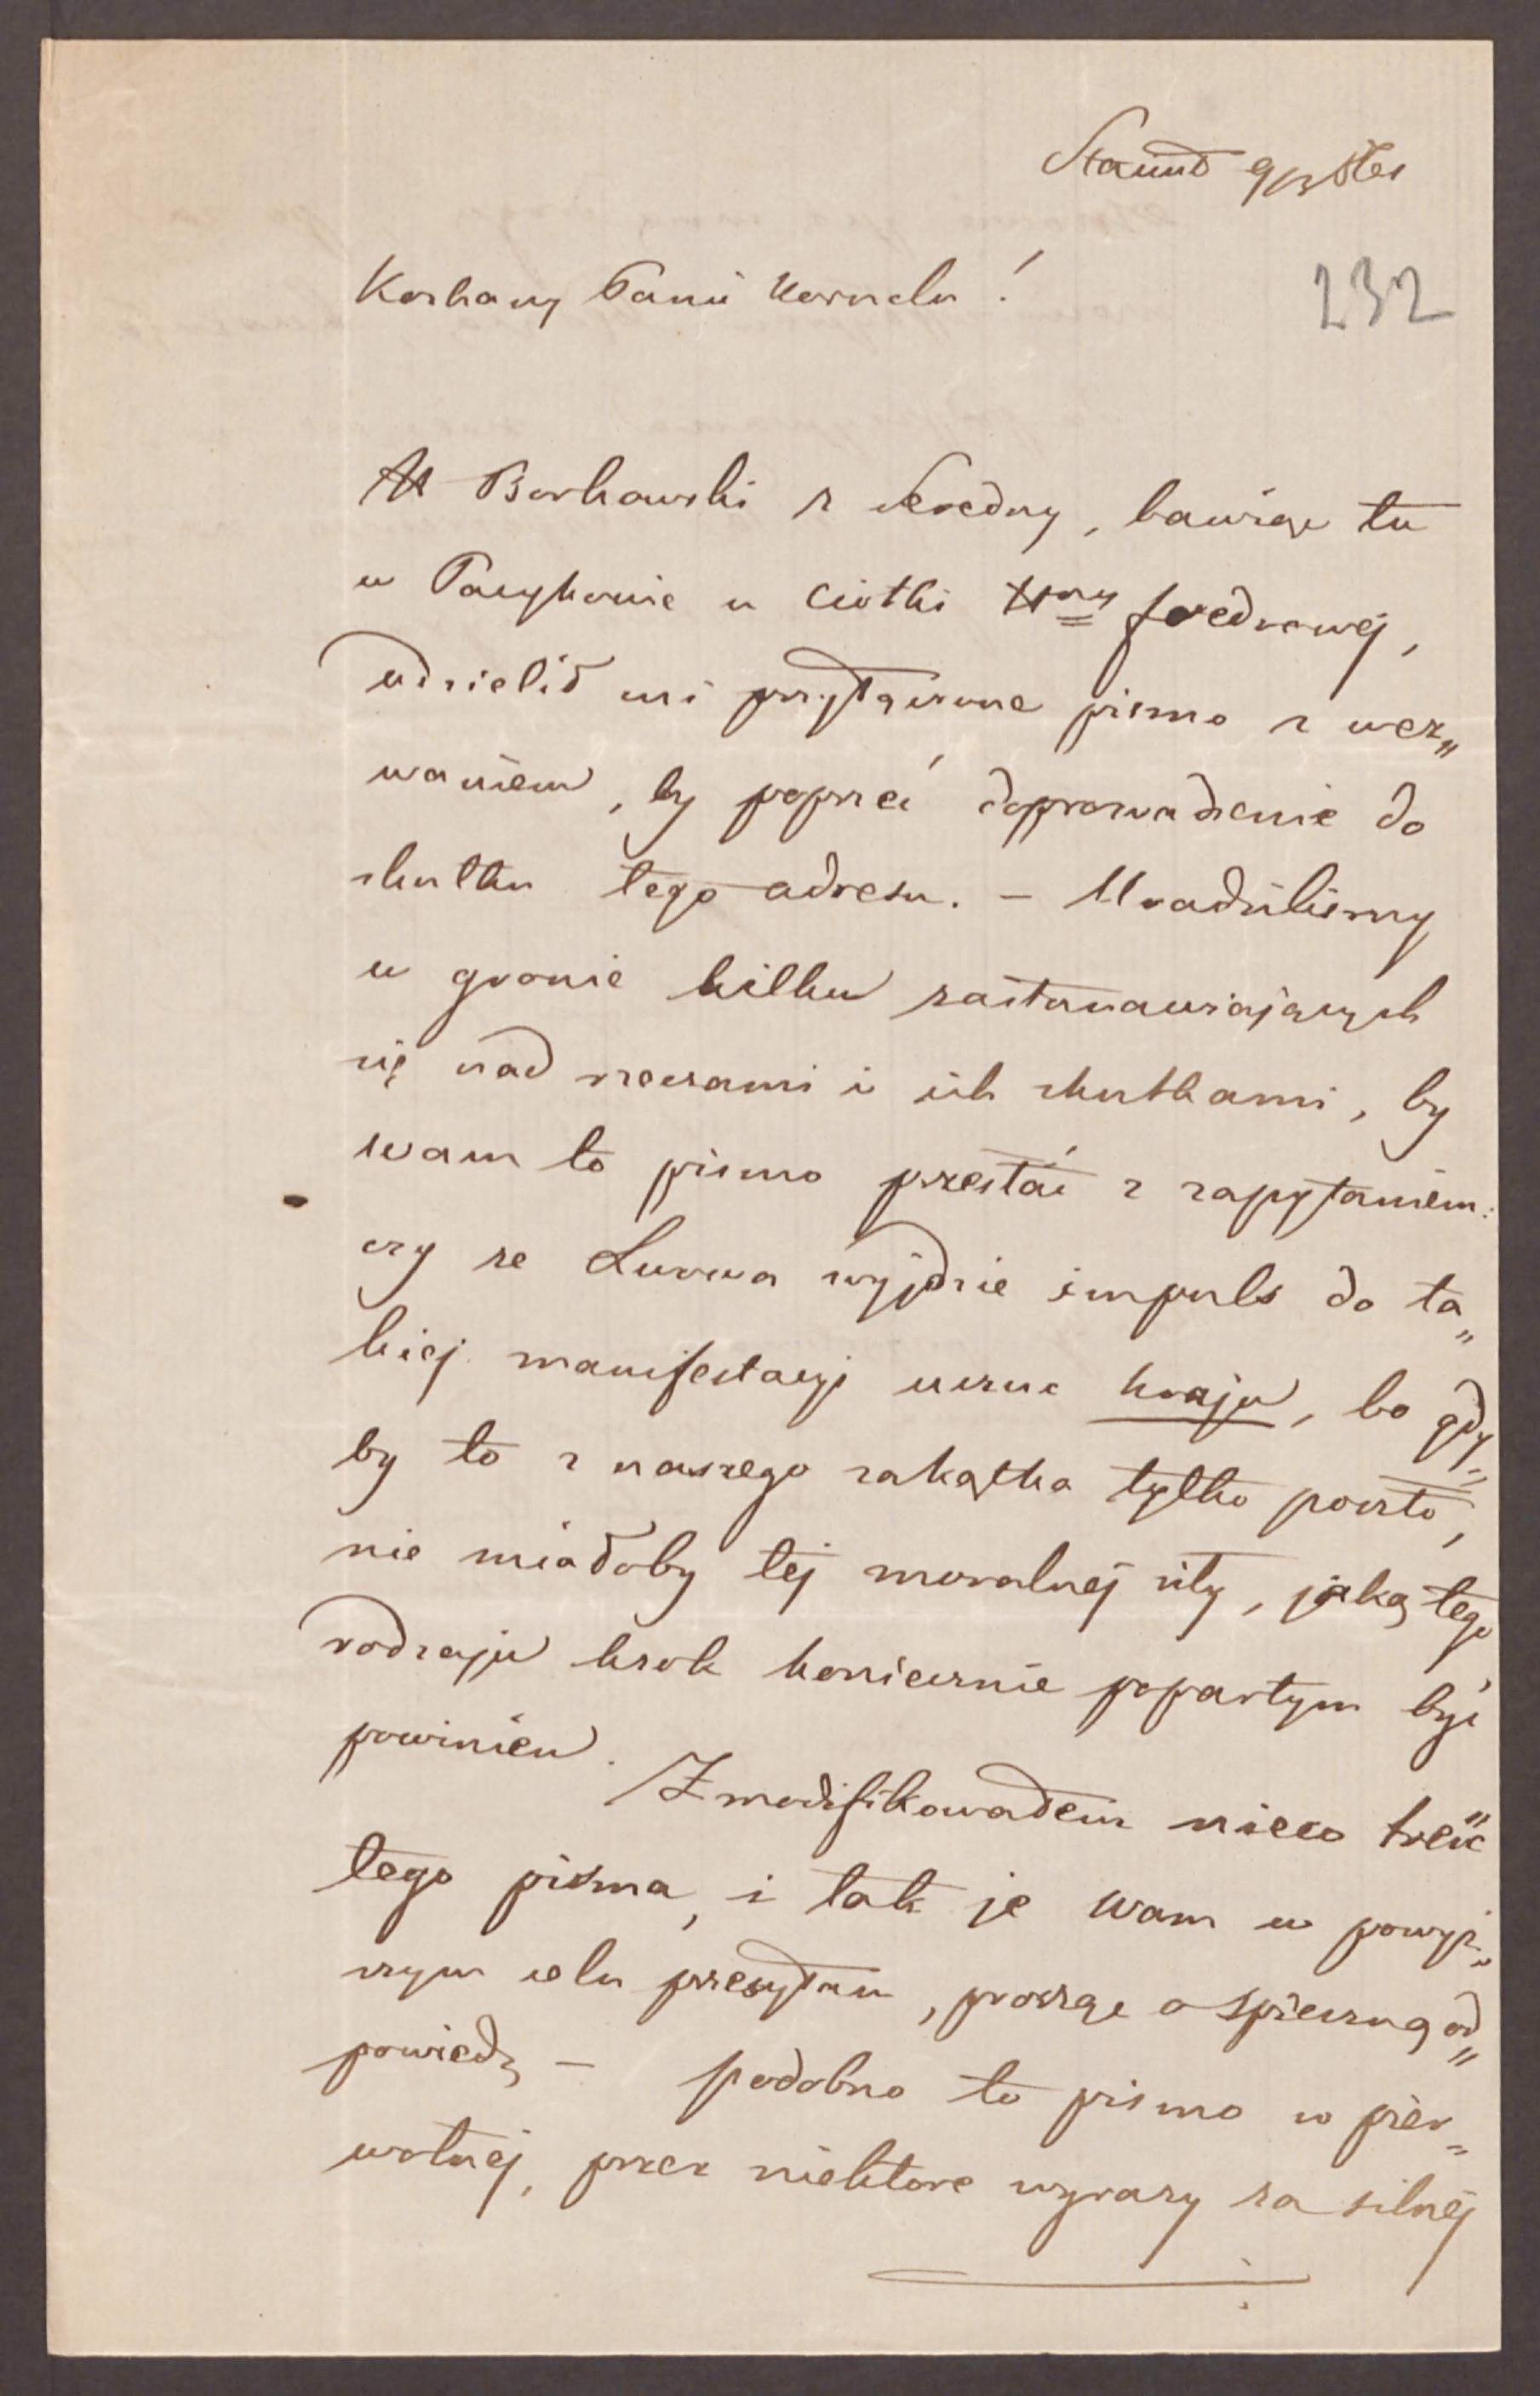 Stanisł 9/3
232
Kochany Panie Kornelu!
Borkowski z Seredny, bawiąc tu
w Pacykowie u Ciotki Hny fredrowej,
udzielił mi przyłączone pismo z wez„
waniem, by poprzeć doprowadzenie do
skutku tego adresu. – Uradziliśmy
w gronie kilku zastanawiających
się nad rzeczami i ich skutkami, by
wam to pismo przesłać z zapytaniem:
czy ze Lwowa wyjdzie impuls do ta„
kiej manifestacyi kraju, bo gdy„
by to z naszego zakątka tylko poszło,
nie miałoby tej moralnej siły, jaką tego
rodzaju krok koniecznie popartym być
powinien. Zmodifikowałem nieco treść
tego pisma, i tak je wam w powyż„
szym celu przesyłam, prosząc o spieszną od„
powiedz – podobno to pismo w pier„
wotnej, przez niektore wyrazy za silnej